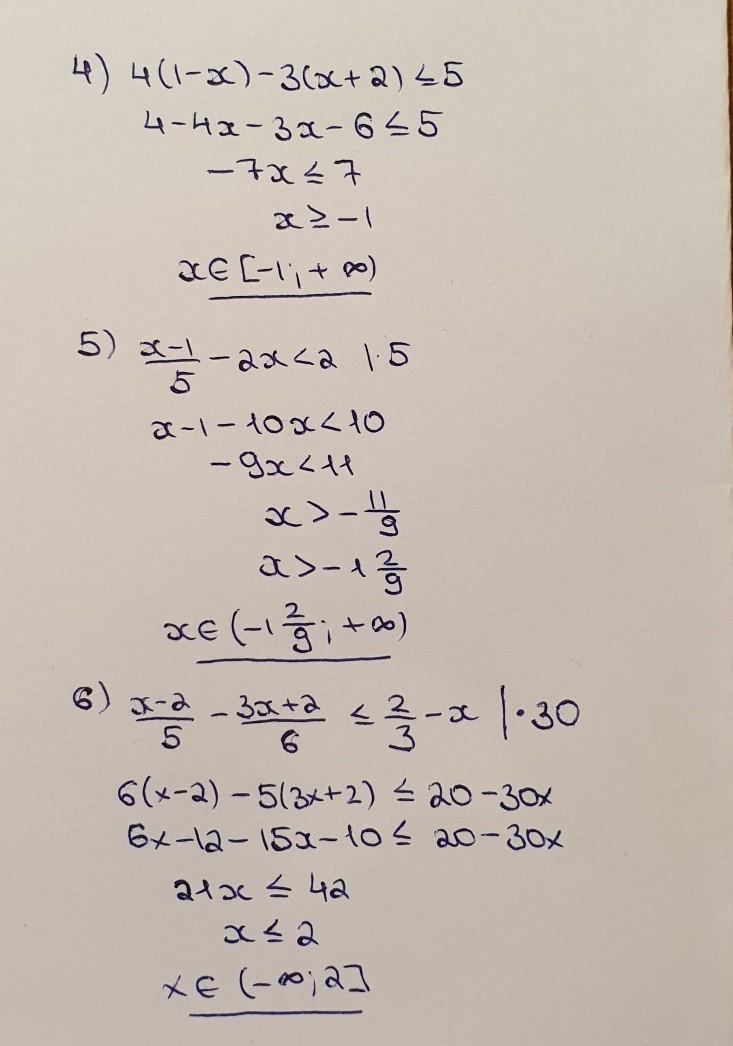 4) 4(1-x)-3(x+2)≤5
4-4x-3x-6≤5
-7x≤7
x≥-1
x∈[-1;+∞)
5) (x-1)/5 - 2x<2 |·5
x-1-10x<10
-9x<11
x>-11/9
x>-1 2/9
x∈(-1 2/9;+∞)
6) (x-2)/5 - (3x+2)/6 ≤ 2/3 - x |·30
6(x-2)-5(3x+2)≤20-30x
6x-12-15x-10≤20-30x
21x≤42
x≤2
x∈(-∞;2]